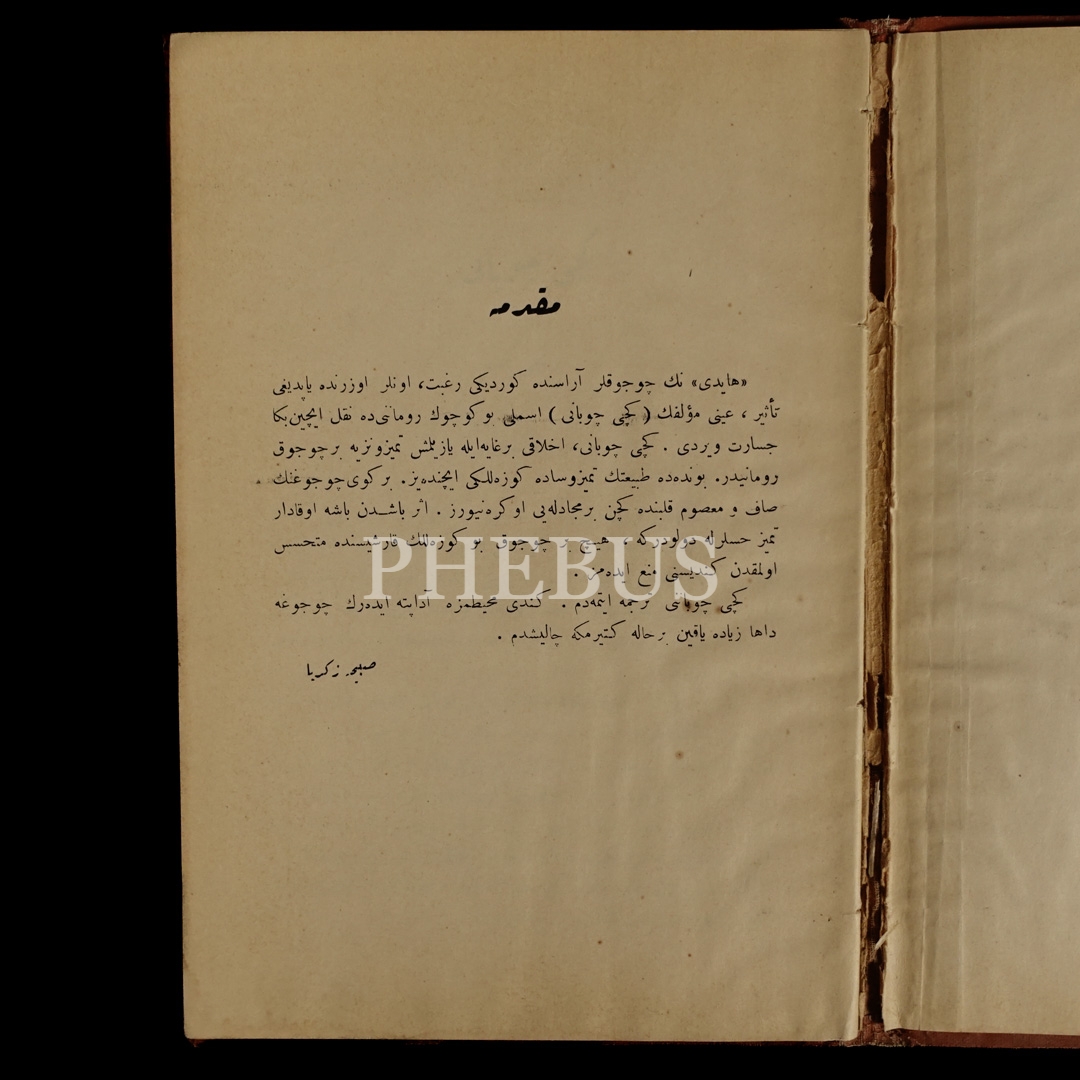 مقدمه
«هایدی» نك چوجوقلر آراسنده كوردیكی رغبت، اونلر اوزرنده یاپدیغی
تأثیر ، عینی مؤلفك ( كچی چوبانی ) اسملی بو كوچوك روماننی‌ده نقل ایچین بكا
جسارت ویردی . كچی چوبانی، اخلاقی برغایه‌ایله یازیلمش تمیزونزیه برچوجوق
رومانیدر. بونده‌ده طبیعتك تمیزوساده كوزه‌للكی ایچنده‌یز. بركوی‌چوجوغنك
صاف و معصوم قلبنده كچن برمجادله‌یی اوكره‌نیورز . اثر باشدن باشه اوقادار
تمیز حسلرله دولودركه ، هیچ بر چوجوق بو كوزه‌للك قارشیسنده متحسس
اولمقدن كندیسنی منع ایده‌مز .
كچی چوبانی ترجمه ایتمه‌دم . كندی محیطمزه آداپته ایده‌رك چوجوغه
داها زیاده یاقین برحاله كتیرمكه چالیشدم .
صبیحه زكریا
PHEBUS